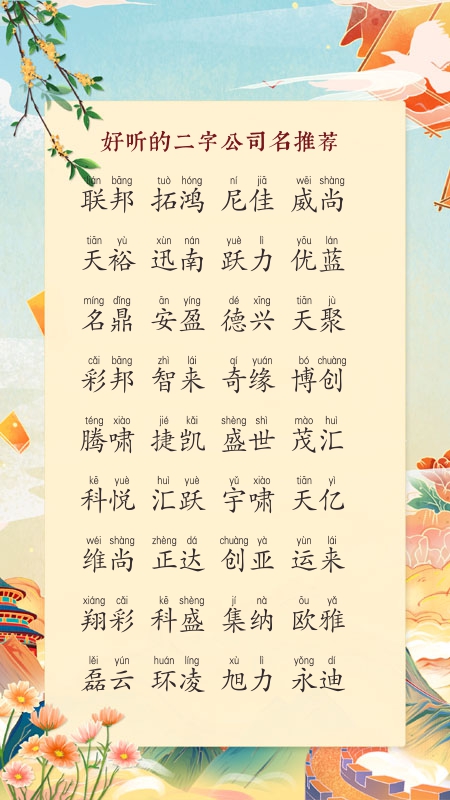 好听的二字公司名推荐
lián bāng tuò hóng ní jiā wēi shàng
联邦 拓鸿 尼佳 威尚
tiān yù xùn nán yuè lì yōu lán
天裕 迅南 跃力 优蓝
míng dǐng ān yíng dé xīng tiān jù
名鼎 安盈 德兴 天聚
cǎi bāng zhì lái qí yuán bó chuàng
彩邦 智来 奇缘 博创
téng xiào jié kǎi shèng shì mào huì
腾啸 捷凯 盛世 茂汇
kē yuè huì yuè yǔ xiào tiān yì
科悦 汇跃 宇啸 天亿
wéi shàng zhèng dá chuàng yà yùn lái
维尚 正达 创亚 运来
xiáng cǎi kē shèng jí nà ōu yǎ
翔彩 科盛 集纳 欧雅
lěi yún huán líng xù lì yǒng dí
磊云 环凌 旭力 永迪